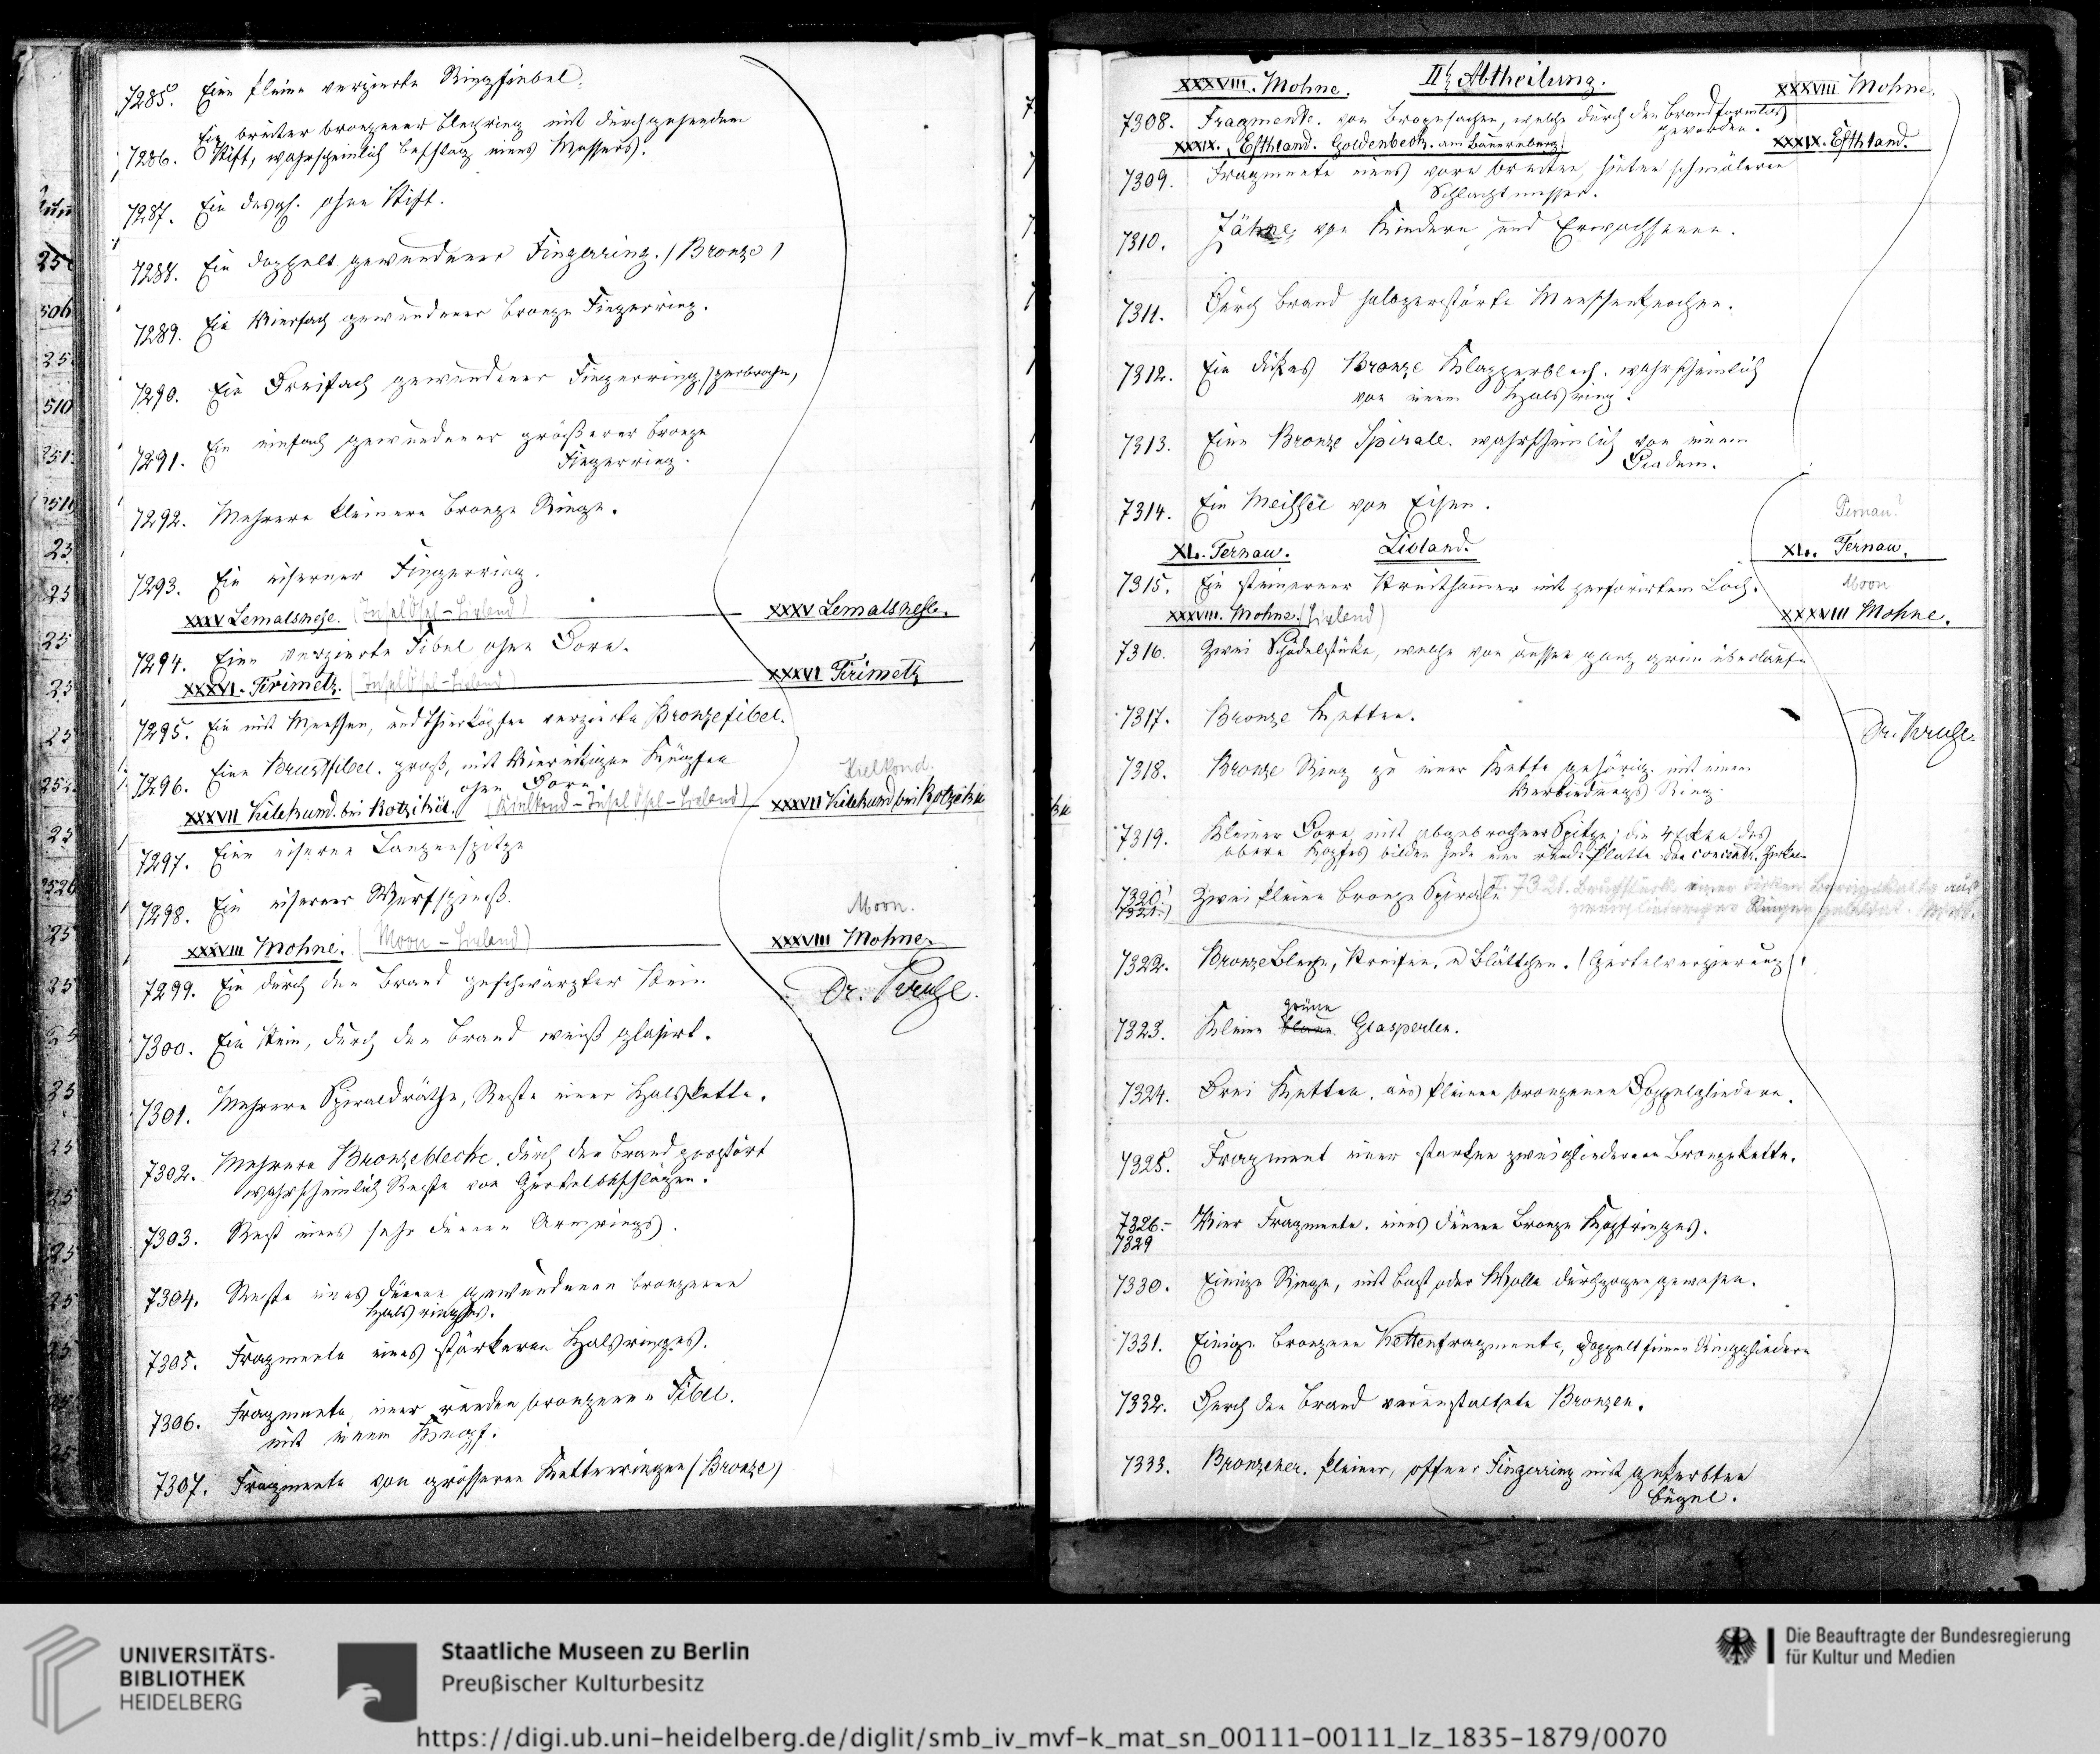 7285. Eine kleine verzierte Ringfiebel.
7286. Ein breiter bronzener Blechring mit durchgehendem
Stift, wahrscheinlich Beschlag eines Messers.
7287. Ein desgl. ohne Stift.
7288. Ein doppelt gewundener Fingerring. (Bronze)
7289. Ein Vierfach gewundener bronze Fingerring.
7290. Ein Dreifach gewundener Fingerring, zerbrochen,
7291. Ein einfach gewundener größerer bronze
Fingerring.
7292. Mehrere kleinere bronze Ringe.
7293. Ein eiserner Fingerring.
XXXV Lemalsnese. (Insel Ösel - Livland) XXXV Lemalsnese.
7294. Eine verzierte Fibel ohne Dorn.
XXXVI. Tirimetz. (Insel Ösel - Livland) XXXVI Tirimetz
7295. Ein mit Menschen, und Thierköpfen verzierte Bronzefibel.
7296. Eine Brustfibel. groß, mit Viereckigen Knöpfen
ohne Dorn.
Kielkond.
XXXVII Kilekund. bei Rotziküll. (Kielkond - Insel Ösel - Livland) XXXVII Kilekund bei
7297. Eine eiserne Lanzenspitze
7298. Ein eiserner Wurfspieß.
Moon.
XXXVIII Mohne. (Moon - Livland) XXXVIII Mohne.
7299. Ein durch den Brand geschwärzter Stein
Dr. Kruse.
7300. Ein Stein, durch den Brand weiß glasirt.
7301. Mehrere Spiraldräthe, Reste einer Halskette.
7302. Mehrere Bronzebleche. durch den Brand zerstört
wahrscheinlich Reste von Gürtelbeschlägen.
7303. Rest eines sehr dünnen Armrings.
7304. Reste eines dünnen gewundenen bronzenen
Halsringes.
7305. Fragmente eines stärkeren Halsringes.
7306. Fragmente einer runden bronzenen Fibel.
mit einem Knopf.
7307. Fragmente von grösseren Kettenringen (Bronze)
XXXVIII. Mohne. IIte Abtheilung. XXXVIII Mohne.
7308. Fragmente. von Bronzesachen, welche durch den Brand formlos
geworden.
XXXIX. Esthland. Goldenbeck. am Bauernberg. XXXIX. Esthland.
7309. Fragmente eines vorn breiten, hinten schmäleren
Schlachtmesser.
7310. Zähne, von Kindern und Erwachsenen.
7311. Durch Brand halbzerstörte Menschenknochen.
7312. Ein dickes Bronze Klapperblech. wahrscheinlich
von einem Halsring.
7313. Eine Bronze Spirale. wahrscheinlich von einem
Diadem.
7314. Ein Meissel von Eisen.
Pernau!
XL. Ternau. Livland. XL. Ternau.
7315. Ein steinerner Streithammer mit perforirtem Loch.
Moon
XXXVIII. Mohne. (Livland) XXXVIII Mohne.
7316. Zwei Schädelstücke, welche von aussen ganz grün überlaufen
7317. Bronze Ketten.
Dr. Kruse.
7318. Bronze Ring zu einer Kette gehörig. mit einem
Verbindungs Ring.
7319. Kleiner Dorn mit abgebrochner Spitze; die 4 Ecken des
obern Kopfes bilden jede eine runde Platte concentr.
7320.
7321. Zwei kleine bronze Spiralen 7321. Bruchstück einer dicken aus
Ringen
7322. BronzeBleche, Streifen, u Blättchen. (Gürtelverzierung)
7323. Kleine grüne Glasperlen.
7324. Drei Ketten. aus kleinen bronzenen Doppelgliedern.
7325. Fragment einer starken zweigliederen Bronzekette.
7326.-
7329 Vier Fragmente. eines dünnen bronze Kopfringes.
7330. Einige Ringe, mit Bast oder Wolle durchzogen gewesen.
7331. Einige bronzene Kettenfragmente, doppelt Ringgliedern
7332. Durch den Brand verunstaltete Bronzen.
7333. Bronzener. kleiner, offner Fingerring mit gekerbten
bügel.
UNIVERSITÄTS-
BIBLIOTHEK
HEIDELBERG
Staatliche Museen zu Berlin
Preußischer Kulturbesitz
Die Beauftragte der Bundesregierung
für Kultur und Medien
https://digi.ub.uni-heidelberg.de/diglit/smb_iv_mvf-k_mat_sn_00111-00111_lz_1835-1879/0070